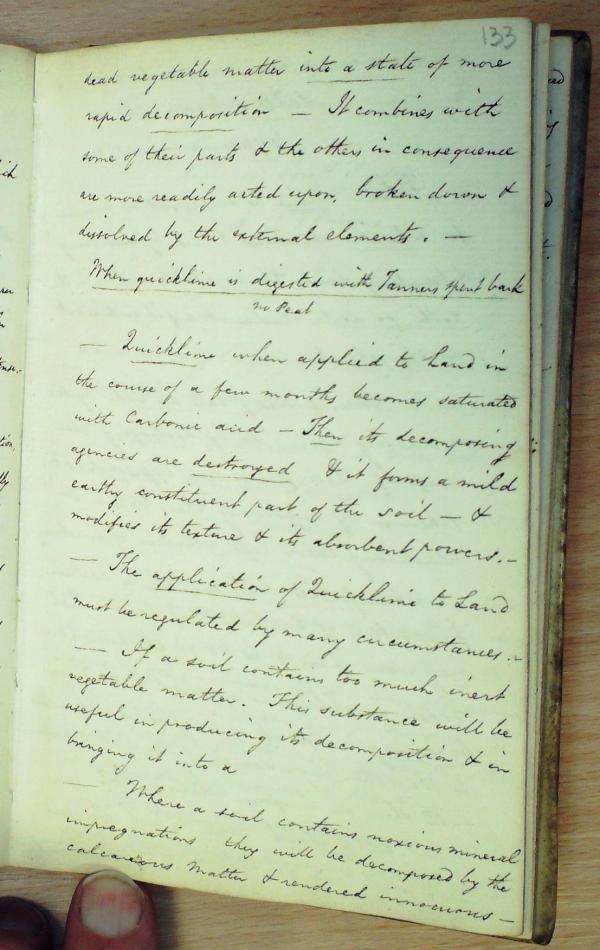 133
dead vegetable matter into a state of more
rapid decomposition — It combines with
some of their parts & the others in consequence
are more readily acted upon, broken down &
dissolved by the external elements. —
When quicklime is digested with Tanners spent bark
no Peat
— Quicklime when applied to Land in
the course of a few months becomes saturated
with Carbonic acid — Then its decomposing
agencies are destroyed & it forms a mild
earthy constituent part of the soil — &
modifies its texture & its absorbent powers. —
— The application of Quicklime to Land
must be regulated by many circumstances. —
— If a soil contains too much inert
vegetable matter. This substance will be
useful in producing its decomposition & in
bringing it into a
— Where a soil contains noxious mineral
impregnations they will be decomposed by the
calcareous matter & rendered innocuous —